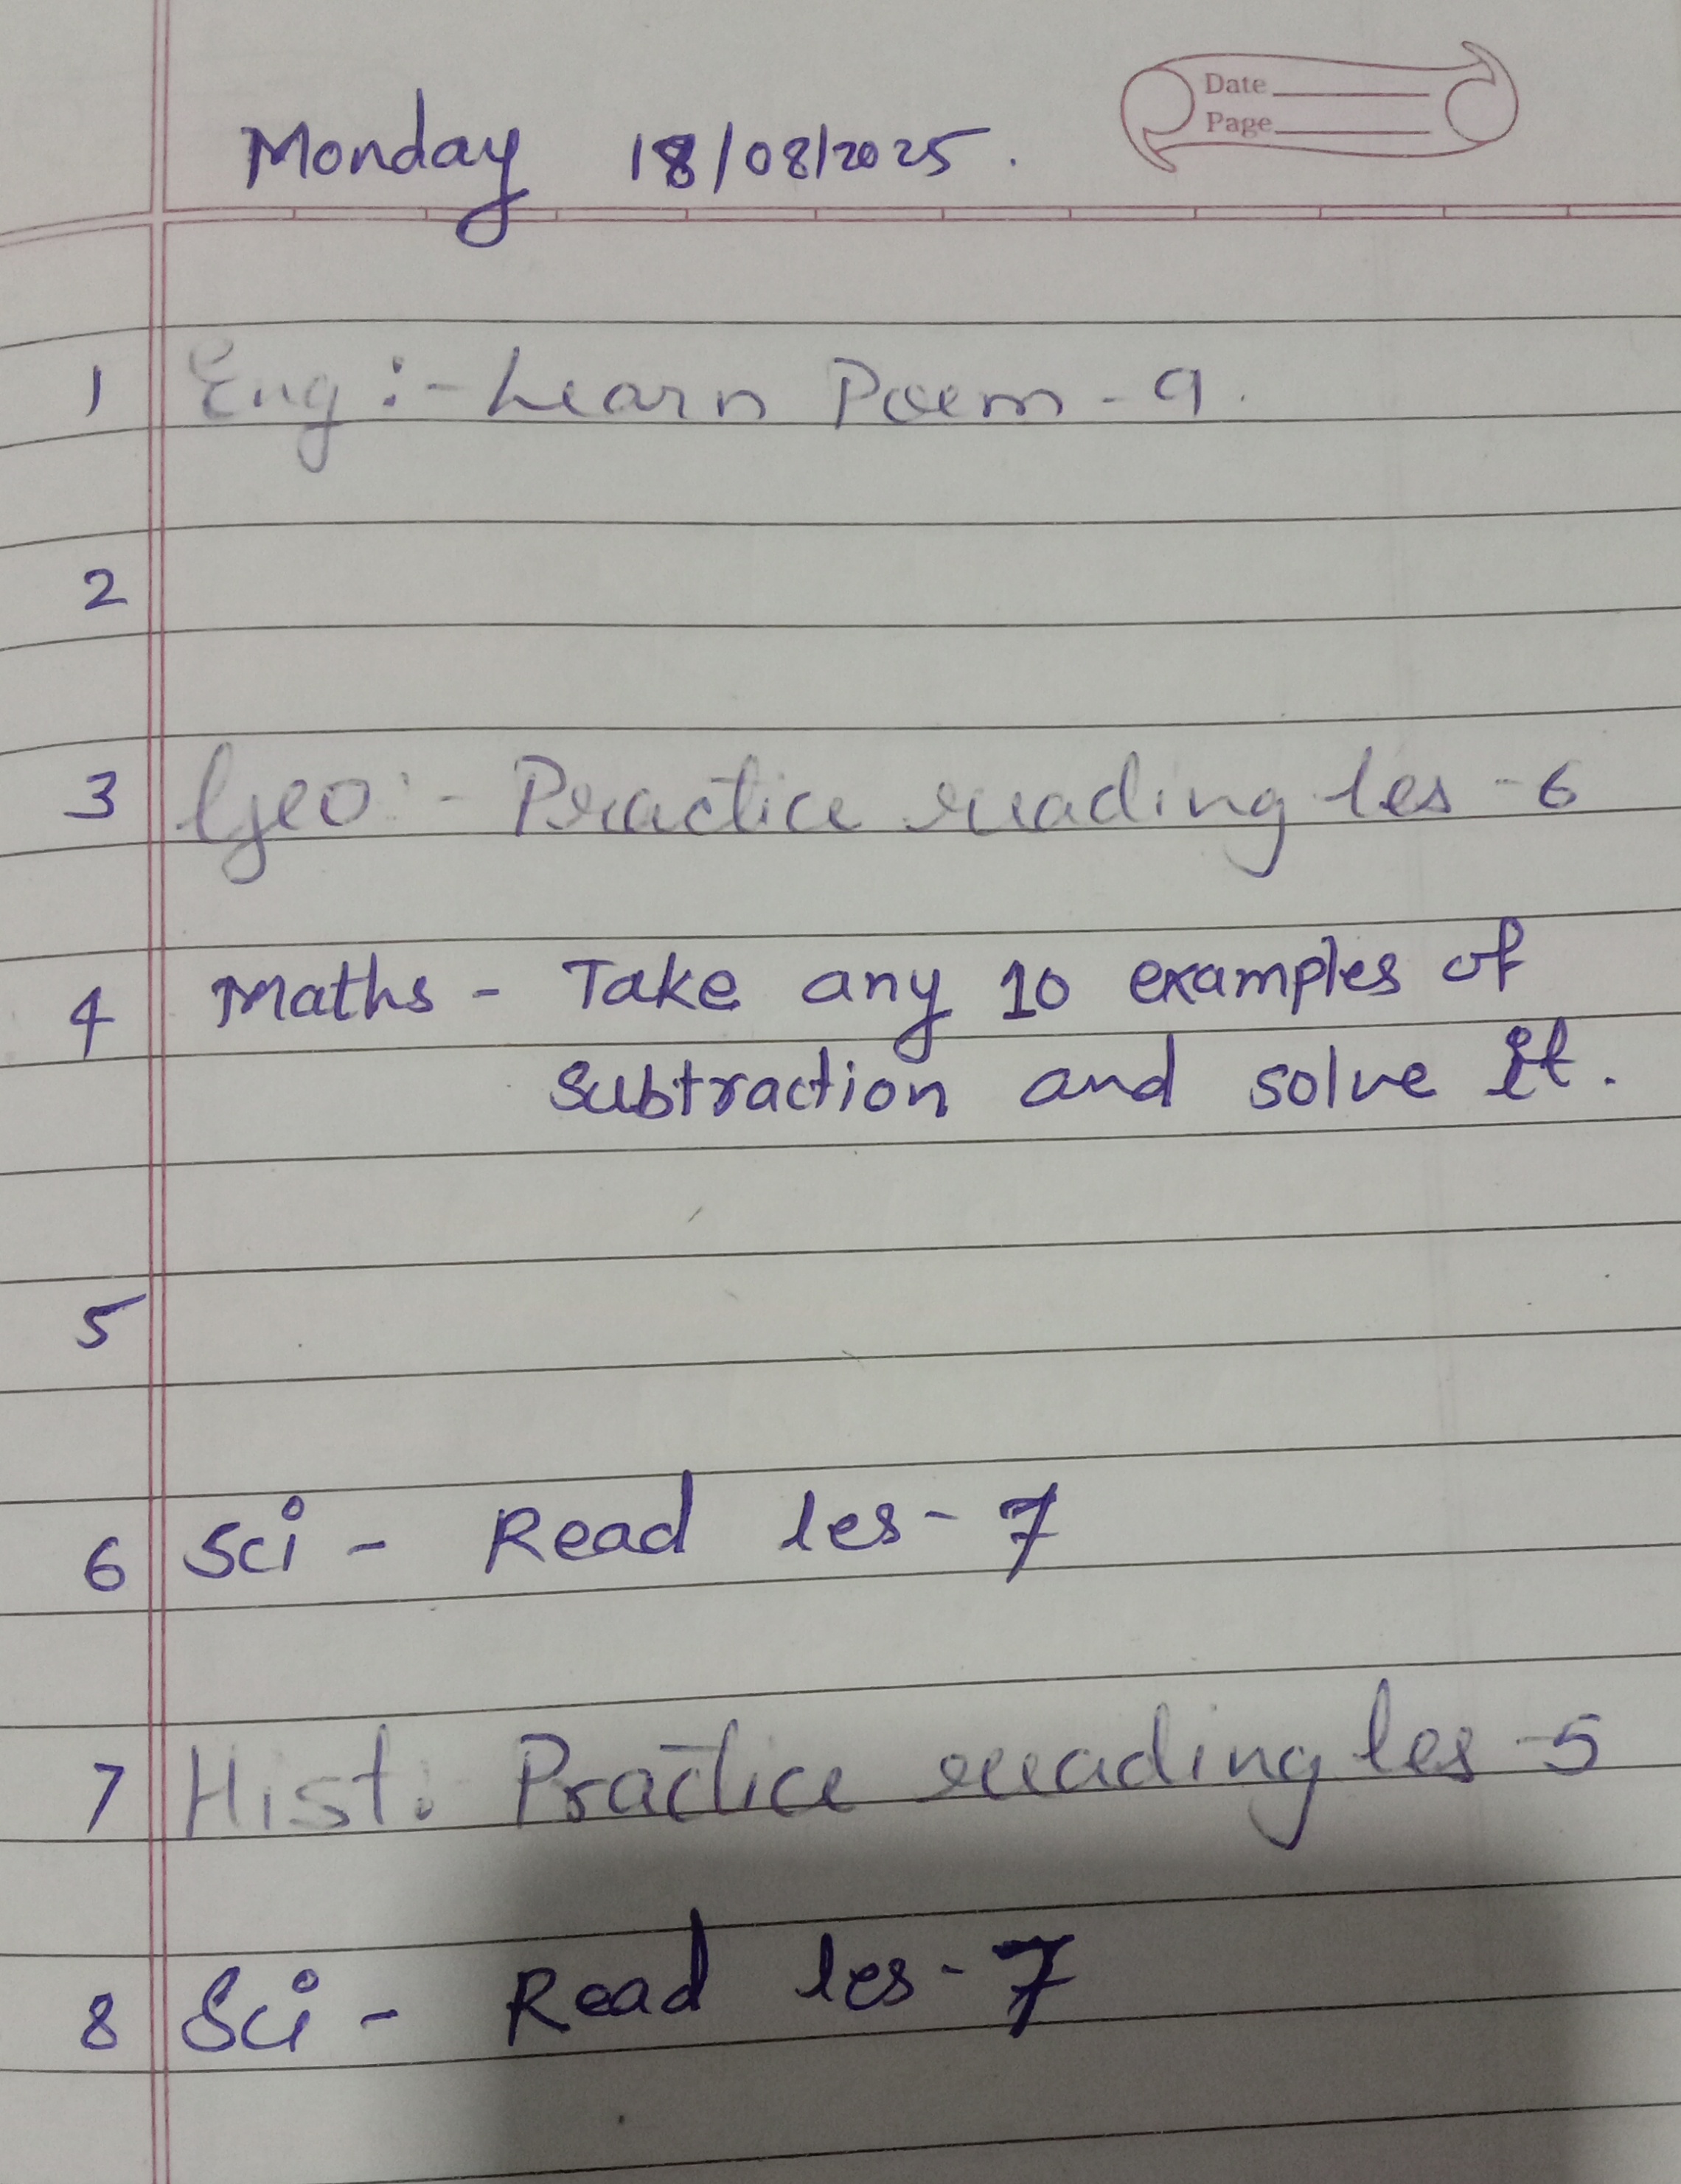 Date
Page
Monday 18/08/2025.
1 Eng :- Learn Poem - 9.
2
3 Geo :- Practice reading les - 6
4 Maths - Take any 10 examples of
subtraction and solve it.
5
6 Sci - Read les - 7
7 Hist: Practice reading les - 5
8 Sci - Read les - 7